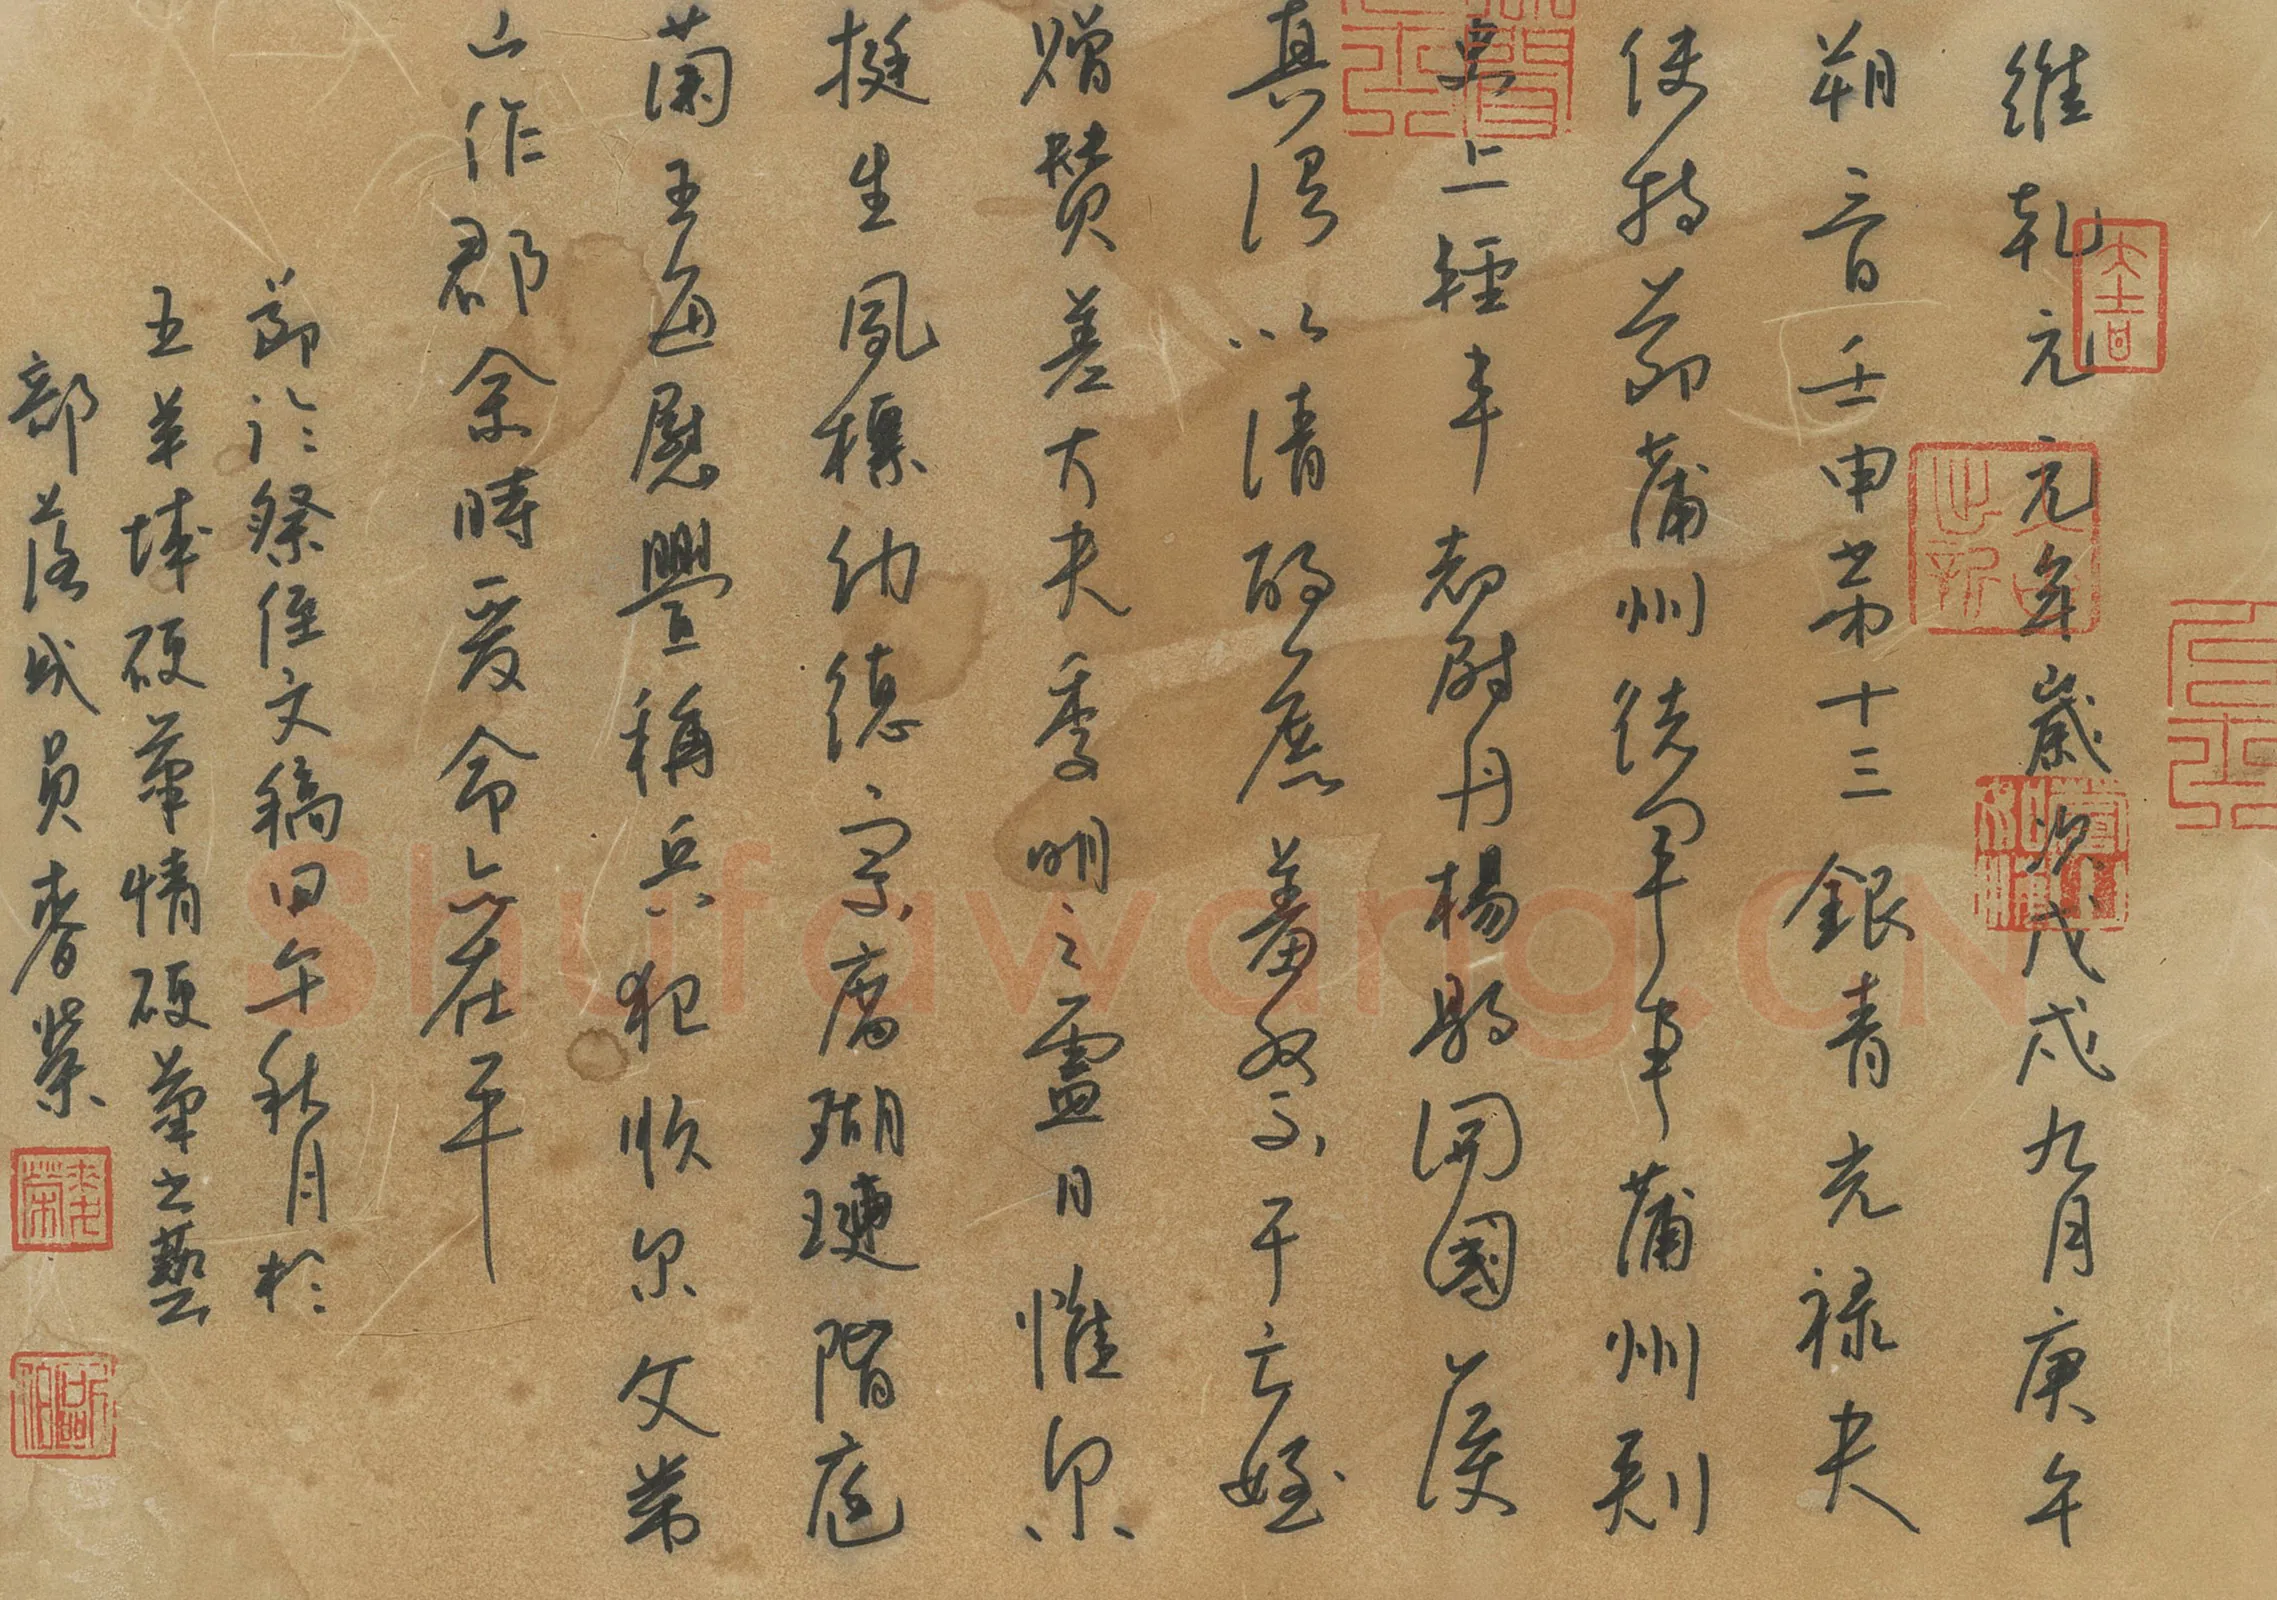 維乾元元年歲次戊戌九月庚午
朔三日壬申第十三銀青光禄夫
使持節蒲州諸軍事蒲州刺
史上輕車都尉丹楊縣開國侯
真卿以清酌庶羞祭于亡姪
贈贊善大夫季明之靈曰惟尔
挺生夙標幼德宗廟瑚璉階庭
蘭玉每慰豐稱兵犯順尔父常
山作郡余時受命亦在平
節於祭侄文稿日午秋月於
五羊城硬筆情硬筆之藝
部落成員春榮
大吉
Shufawang.CN